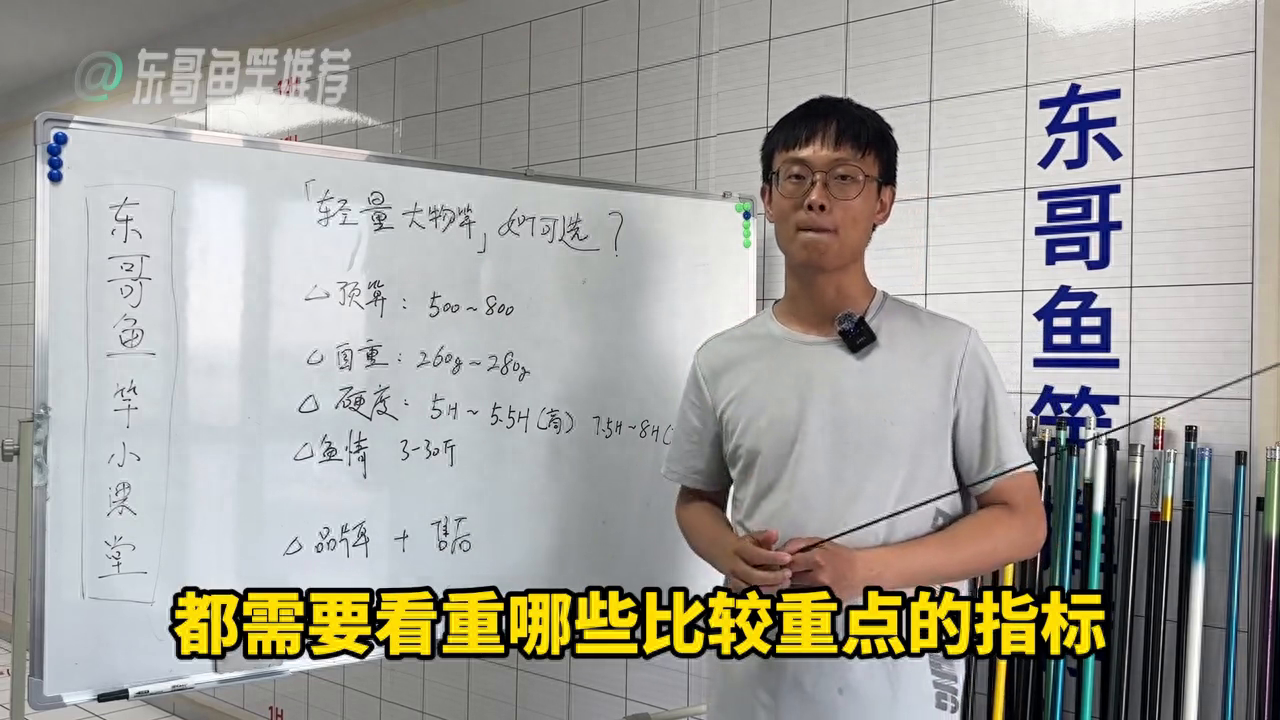 @东哥鱼竿推荐
东哥鱼竿小课堂
「轻量大物竿」如何选?
△ 预算: 500~800
△ 自重: 260g~280g
△ 硬度: 5H~5.5H(高) 7.5H~8H(
△ 鱼情 3-30斤
△ 品牌 + 售后
东哥鱼竿
都需要看重哪些比较重点的指标
1H